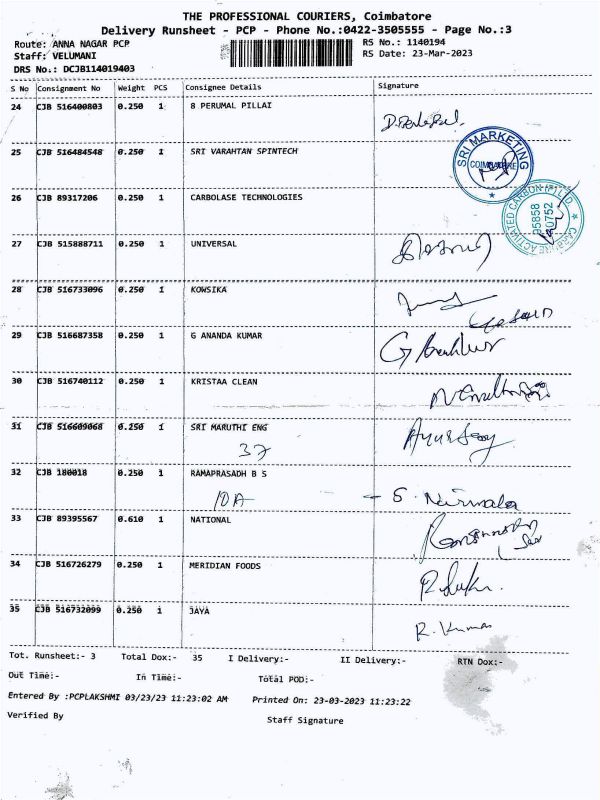 THE PROFESSIONAL COURIERS, Coimbatore
Delivery Runsheet - PCP - Phone No.:0422-3505555 - Page No.:3
Route: ANNA NAGAR PCP RS No.: 1140194
Staff: VELUMANI RS Date: 23-Mar-2023
DRS No.: DCJB114019403
S No Consignment No Weight PCS Consignee Details Signature
24 CJB 516400803 0.250 1 B PERUMAL PILLAI
25 CJB 516484548 0.250 1 SRI VARAHTAN SPINTECH
SRI MARKETING
COIMBATORE
26 CJB 89317206 0.250 1 CARBOLASE TECHNOLOGIES
CARBURE ACTIVATED CARBON (P) LTD
95858
40752
27 CJB 515888711 0.250 1 UNIVERSAL
28 CJB 516733096 0.250 1 KOWSIKA
29 CJB 516687358 0.250 1 G ANANDA KUMAR
30 CJB 516740112 0.250 1 KRISTAA CLEAN
31 CJB 516609068 0.250 1 SRI MARUTHI ENG
37
32 CJB 180018 0.250 1 RAMAPRASADH B S
10A - S. Nirmala
33 CJB 89395567 0.610 1 NATIONAL
34 CJB 516726279 0.250 1 MERIDIAN FOODS
35 CJB 516732099 0.250 1 JAYA
R. Kumar
Tot. Runsheet:- 3 Total Dox:- 35 I Delivery:- II Delivery:- RTN Dox:-
Out Time:- In Time:- Total POD:-
Entered By :PCPLAKSHMI 03/23/23 11:23:02 AM Printed On: 23-03-2023 11:23:22
Verified By Staff Signature